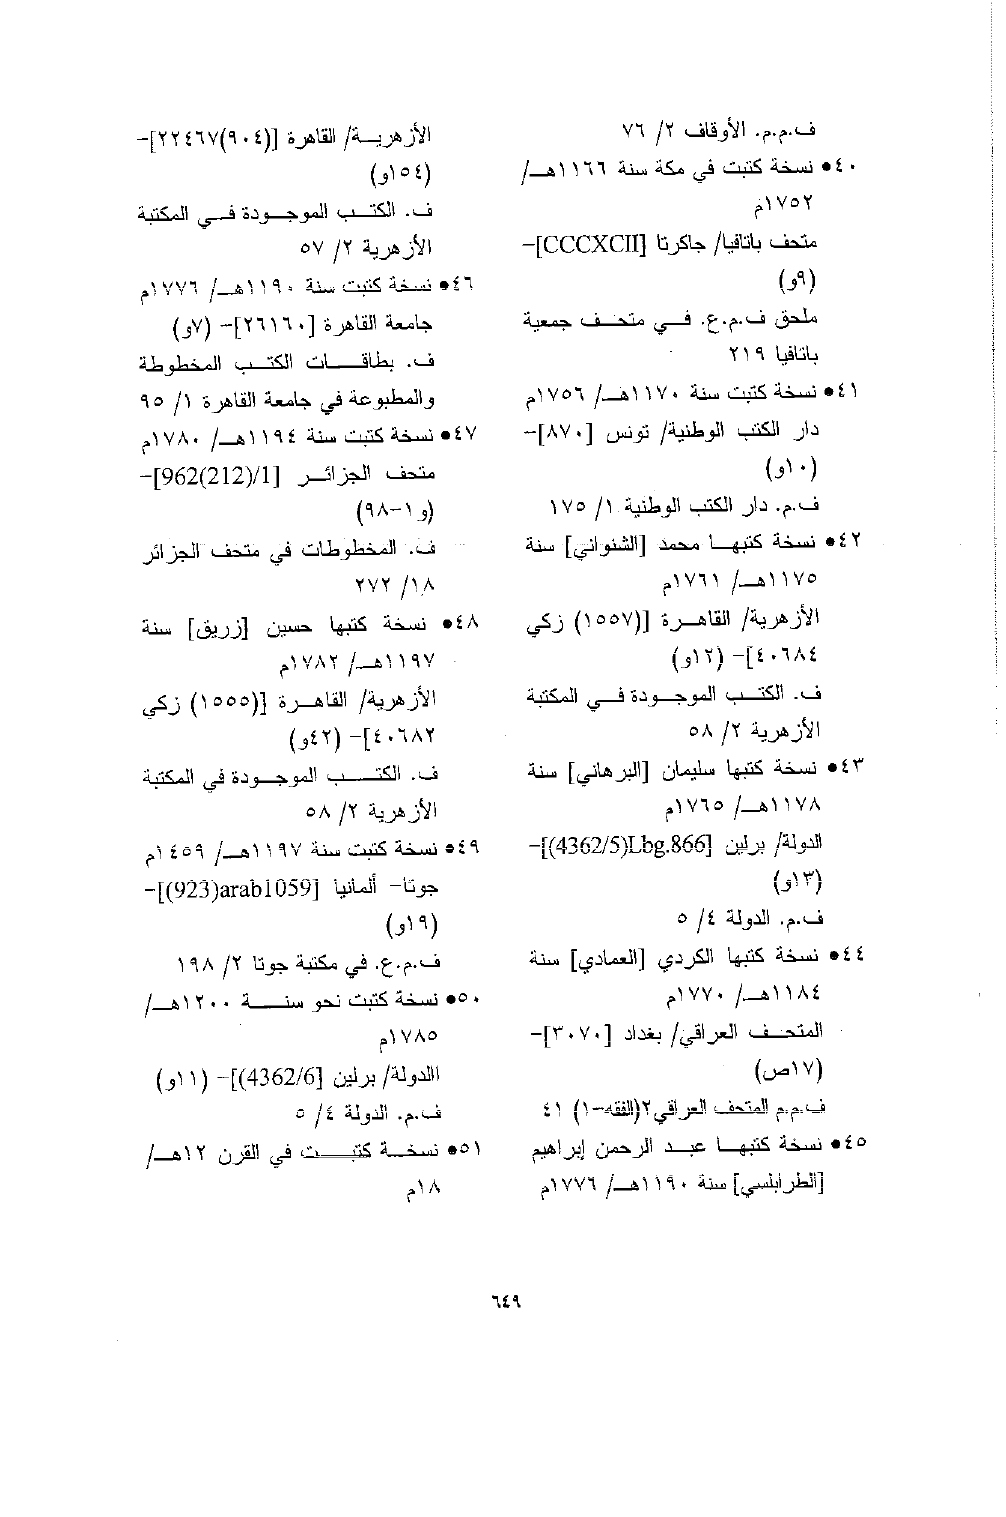 ف.م.م. الأوقاف ٢/ ٧٦
٤٠• نسخة كتبت في مكة سنة ١١٦٦هـ/
١٧٥٢م
متحف باتافيا/ جاكرتا [CCCXCII]-
(٩و)
ملحق ف.م.ع. في متحف جمعية
باتافيا ٢١٩
٤١• نسخة كتبت سنة ١١٧٠هـ/ ١٧٥٦م
دار الكتب الوطنية/ تونس [٨٧٠]-
(١٠و)
ف.م. دار الكتب الوطنية ١/ ١٧٥
٤٢• نسخة كتبها محمد [الشنواني] سنة
١١٧٥هـ/ ١٧٦١م
الأزهرية/ القاهرة [(١٥٥٧) زكي
٤٠٦٨٤]- (١٢و)
ف. الكتب الموجودة في المكتبة
الأزهرية ٢/ ٥٨
٤٣• نسخة كتبها سليمان [البرهاني] سنة
١١٧٨هـ/ ١٧٦٥م
الدولة/ برلين [Lbg.866(4362/5)]-
(١٣و)
ف.م. الدولة ٤/ ٥
٤٤• نسخة كتبها الكردي [العمادي] سنة
١١٨٤هـ/ ١٧٧٠م
المتحف العراقي/ بغداد [٣٠٧٠]-
(١٧ص)
ف.م.م المتحف العراقي٢(الفقه-١) ٤١
٤٥• نسخة كتبها عبد الرحمن إبراهيم
[الطرابلسي] سنة ١١٩٠هـ/ ١٧٧٦م
الأزهرية/ القاهرة [(٩٠٤)٢٢٤٦٧]-
(١٥٤و)
ف. الكتب الموجودة في المكتبة
الأزهرية ٢/ ٥٧
٤٦• نسخة كتبت سنة ١١٩٠هـ/ ١٧٧٦م
جامعة القاهرة [٢٦١٦٠]- (٧و)
ف. بطاقات الكتب المخطوطة
والمطبوعة في جامعة القاهرة ١/ ٩٥
٤٧• نسخة كتبت سنة ١١٩٤هـ/ ١٧٨٠م
متحف الجزائر [962(212)/1]-
(و١-٩٨)
ف. المخطوطات في متحف الجزائر
١٨/ ٢٧٢
٤٨• نسخة كتبها حسين [زريق] سنة
١١٩٧هـ/ ١٧٨٢م
الأزهرية/ القاهرة [(١٥٥٥) زكي
٤٠٦٨٢]- (٤٢و)
ف. الكتب الموجودة في المكتبة
الأزهرية ٢/ ٥٨
٤٩• نسخة كتبت سنة ١١٩٧هـ/ ١٤٥٩م
جوتا- ألمانيا [arab1059(923)]-
(١٩و)
ف.م.ع. في مكتبة جوتا ٢/ ١٩٨
٥٠• نسخة كتبت نحو سنة ١٢٠٠هـ/
١٧٨٥م
االدولة/ برلين [4362/6)]- (١١و)
ف.م. الدولة ٤/ ٥
٥١• نسخة كتبت في القرن ١٢هـ/
١٨م
٦٤٩